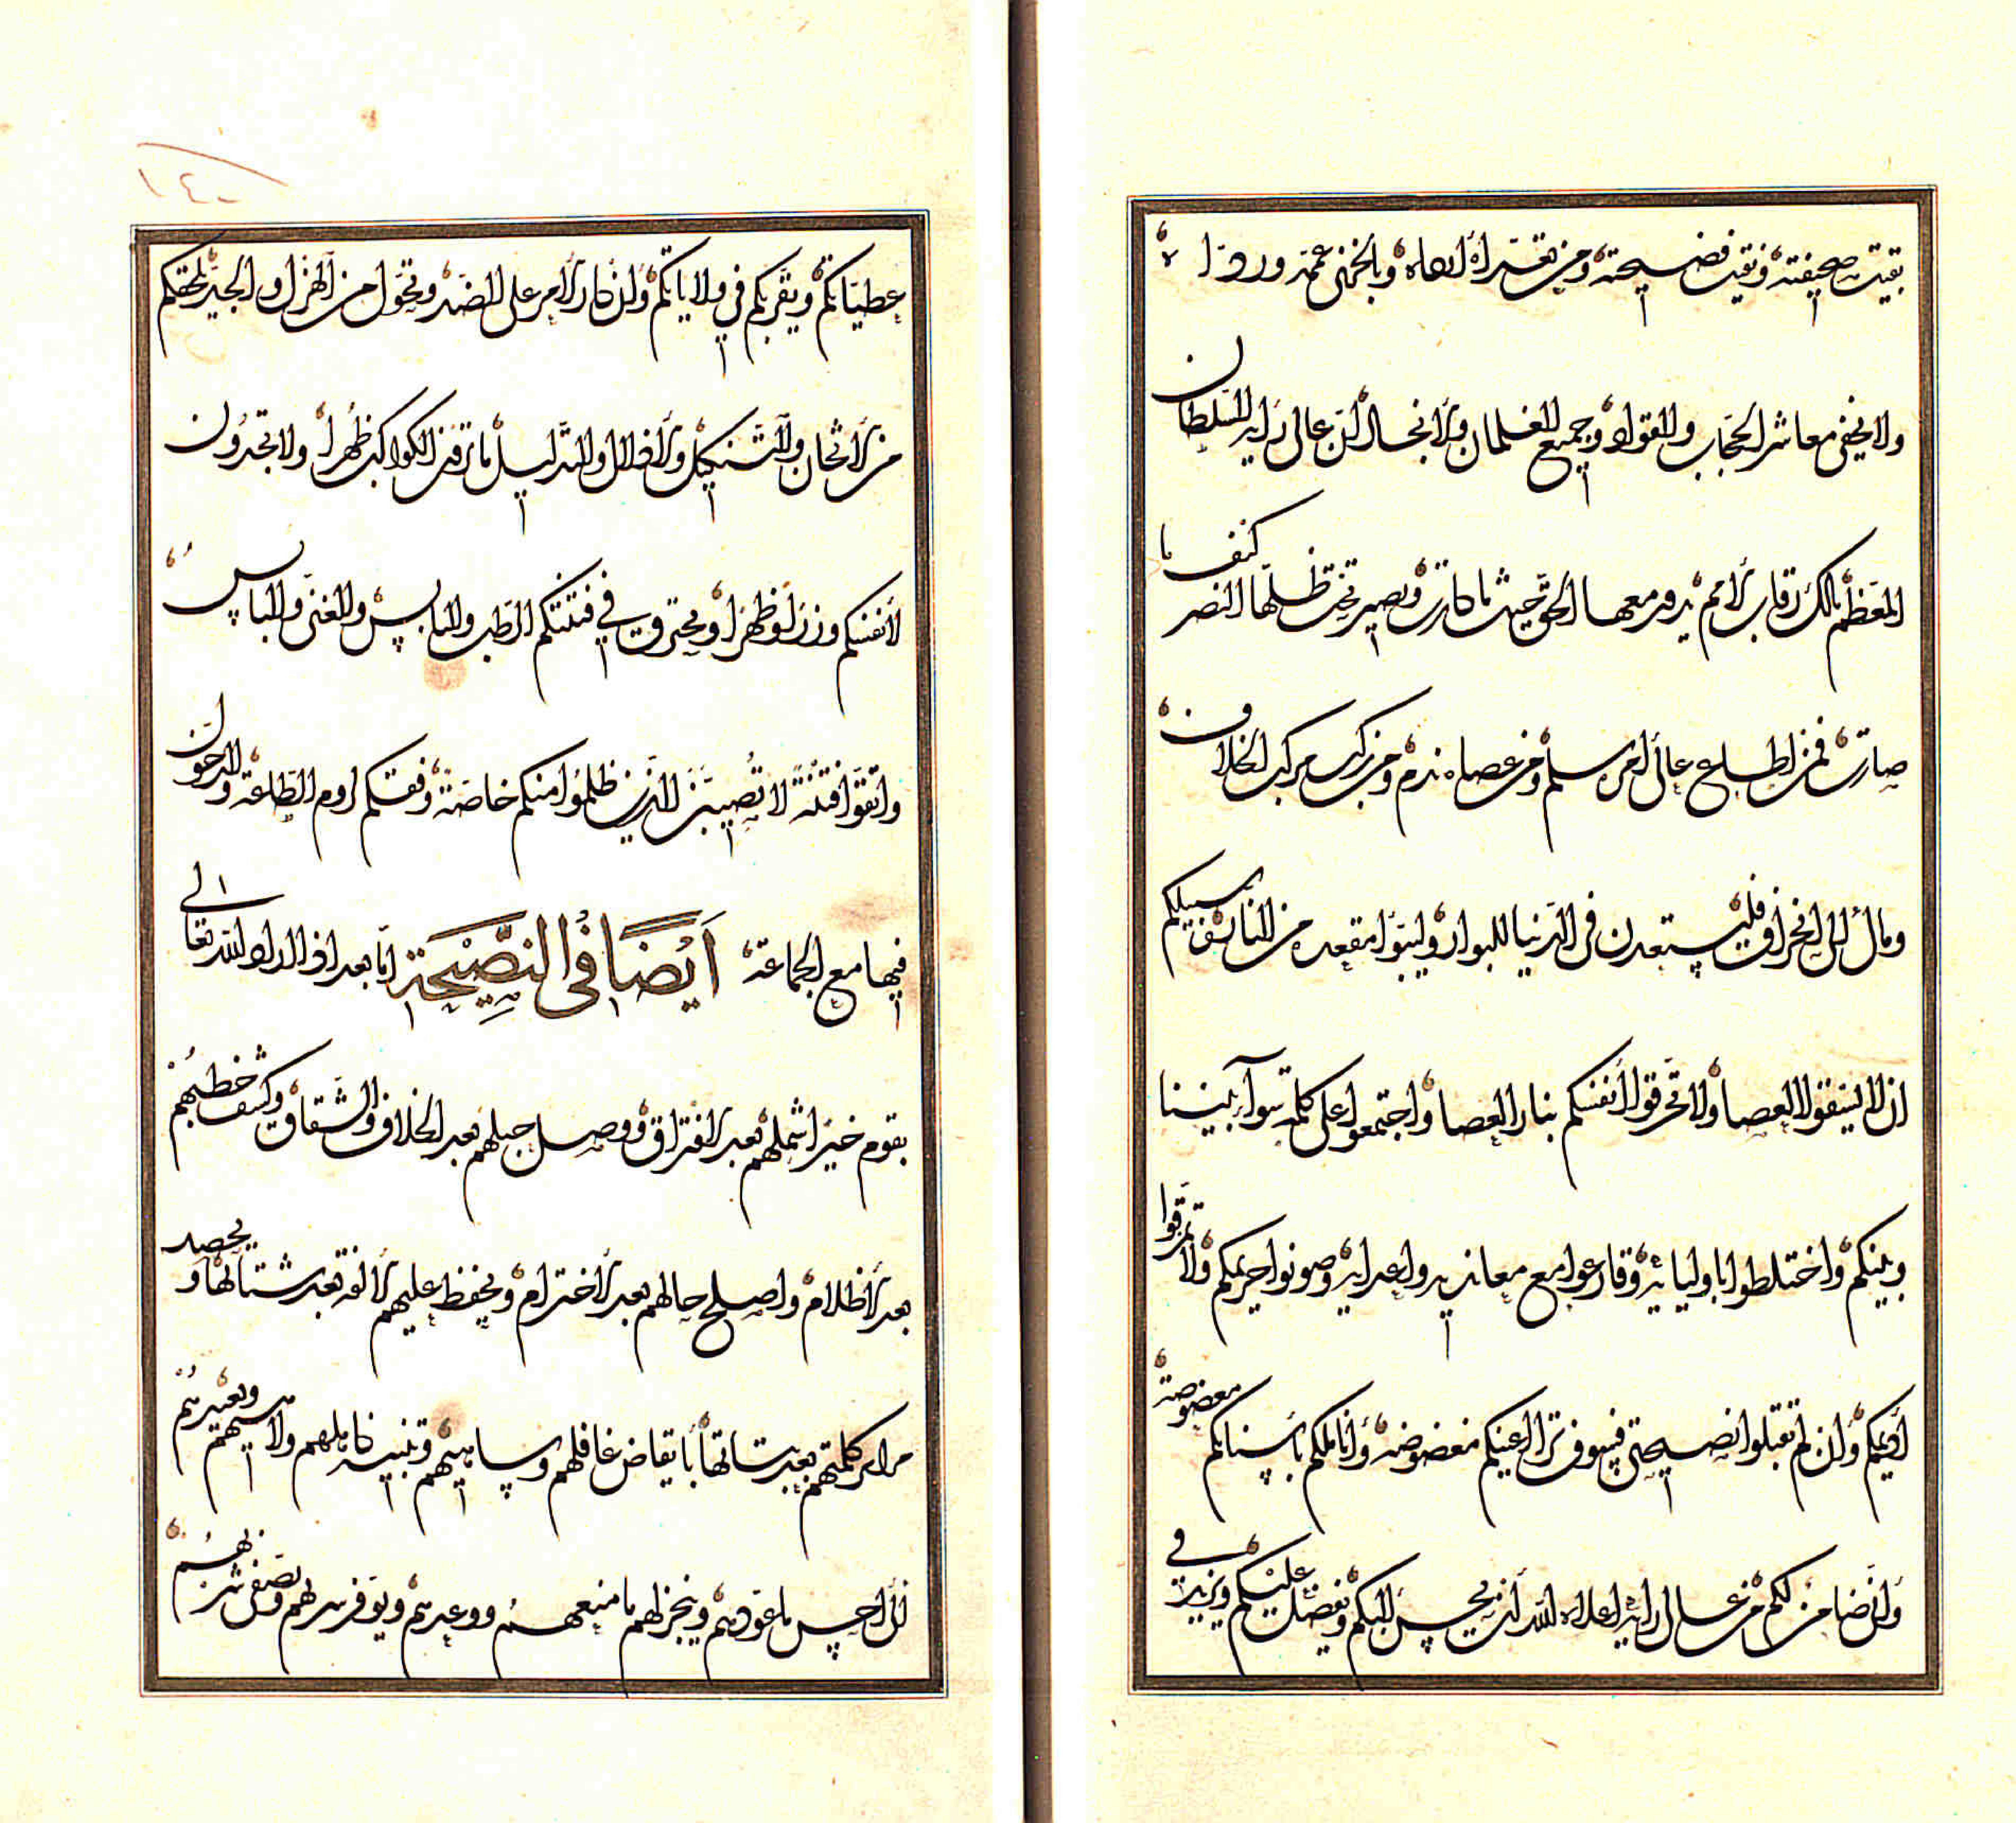 بقيت صحيفته ونقيت فضيحته ومن تعدّاه وبالخزى
ولا يخفى معاشر الحجّاب والقوّاد وجميع الغلمان والانجال ان عالى راية السّلطان
المعظّم مالك رقاب الامم يدور معها الحق حيث ما كانت ويصير تحت ظلّها كنف النصر ما
صارت فمن اطلع عالى امره سلم ومن عصاه ندم ومن ركب مركب الخلاف
ومال الى انحراف فليستعدن فى الدّنيا للبوار وليتبوّا مقعده من النار سبيلكم
ان لا تشقوا العصا ولا تحرقوا انفسكم بنار العصا واجتمعوا على كلمة سوآء بيننا
وبينكم واختلطوا باوليائه وقارعوا مع معانديه واعدايه وصونوا حريمكم ولا تمزقوا
أديمكم وان لم تقبلوا نصيحتى فسوف ترى اعينكم مغضوضة واناملكم باسنانكم معضوضة
وانّ ضامن لكم من عالى رايه اعلاه الله ان يحسن اليكم ويفضل عليكم ويزيد فى
١٤٠
عطيّاتكم ويقرّبكم فى ولاياتكم وان كان الامر على الضد وتحوّل من الهزل الى الجدّ يلحقكم
من الاثخان والتّنكيل والاغلال والتذليل ما ترون الكواكب ظهرا ولا تجدون
لانفسكم وزرا وظهرا ويحترق فى فتنتكم الرّطب واليابس والغنى والبايس
واتقوا فتنة لا تصيبنّ الذين ظلموا منكم خاصّة وفقكم لروم الطّاعة والدخول
فيها مع الجماعة أيضًا فى النصيحة امّا بعد اذا اراد الله تعالى
بقوم خيرا شملهم بعد افتراق ووصل حبلهم بعد الخلاف والشقاق وكشف خطبهم
بعد الاظلام واصلح حالهم بعد الاخترام ويحفظ عليهم الالفة بعد شتاتها ويحصد
مراير كلمتهم بعد بتاتها بايقاض غافلهم وساهيهم وتنبيه خاملهم ولاهيهم ويعيدهم
الى احسن ما عوّدهم وينجز لهم ما منعهم ووعدهم ويوفر سربهم ويصفى شربهم